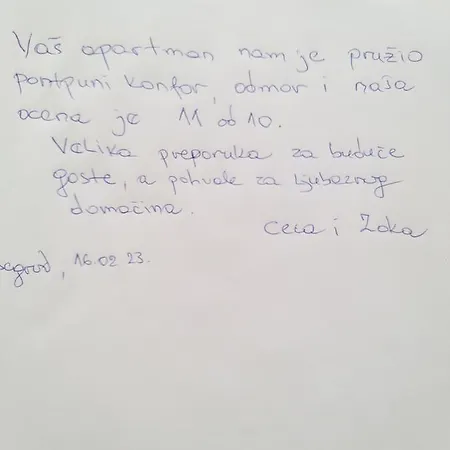 Vaš apartman nam je pružio
potpuni konfor, odmor i naša
ocena je 11 od 10.
Velika preporuka za buduće
goste, a pohvale za ljubaznog
domaćina.
Ceca i Zoka
16.02 23.